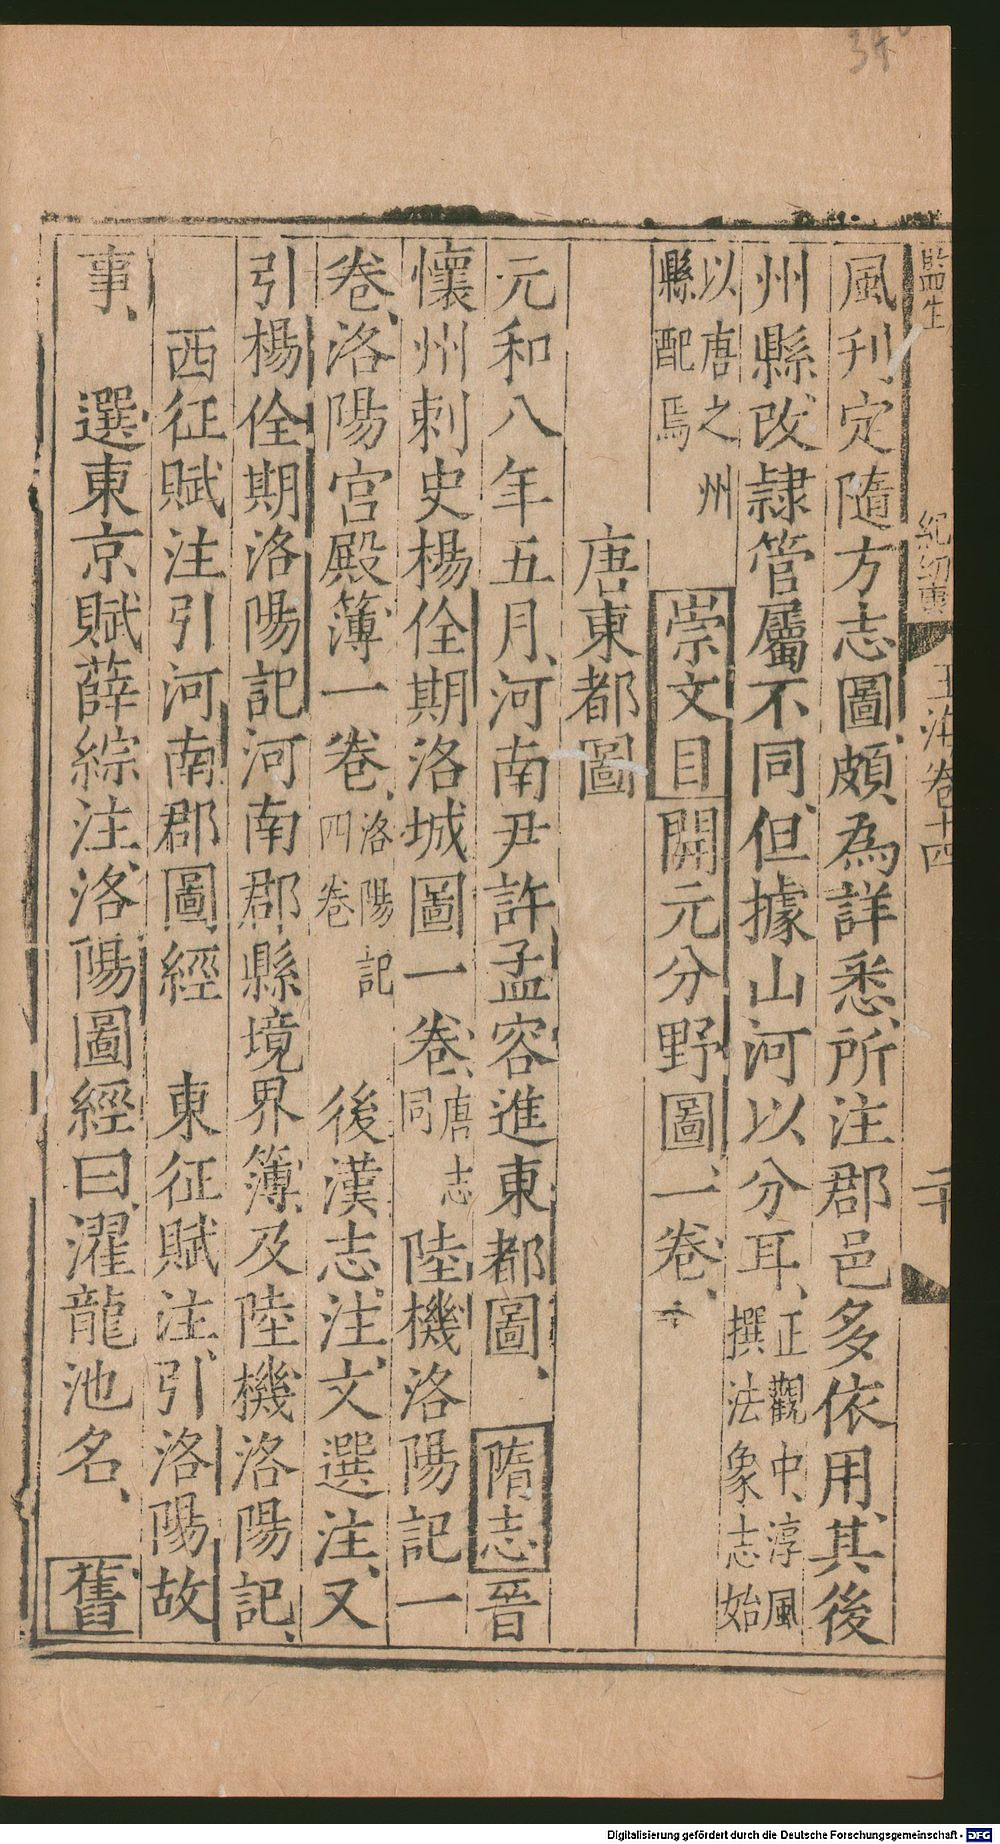 34
監生 紀幼 玉海卷十四 二十
風刊定隨方志圖頗為詳悉所注郡邑多依用其後
州縣改隷管屬不同但據山河以分耳正觀中淳風撰法象志始
以唐之州縣配焉 崇文目開元分野圖一卷
唐東都圖
元和八年五月河南尹許孟容進東都圖 隋志晉
懷州刺史楊佺期洛城圖一卷唐志同 陸機洛陽記一
卷洛陽宮殿簿一卷洛陽記四卷 後漢志注文選注又
引楊佺期洛陽記河南郡縣境界簿及陸機洛陽記
西征賦注引河南郡圖經 東征賦注引洛陽故
事 選東京賦薛綜注洛陽圖經曰濯龍池名 舊
Digitalisierung gefördert durch die Deutsche Forschungsgemeinschaft - DFG